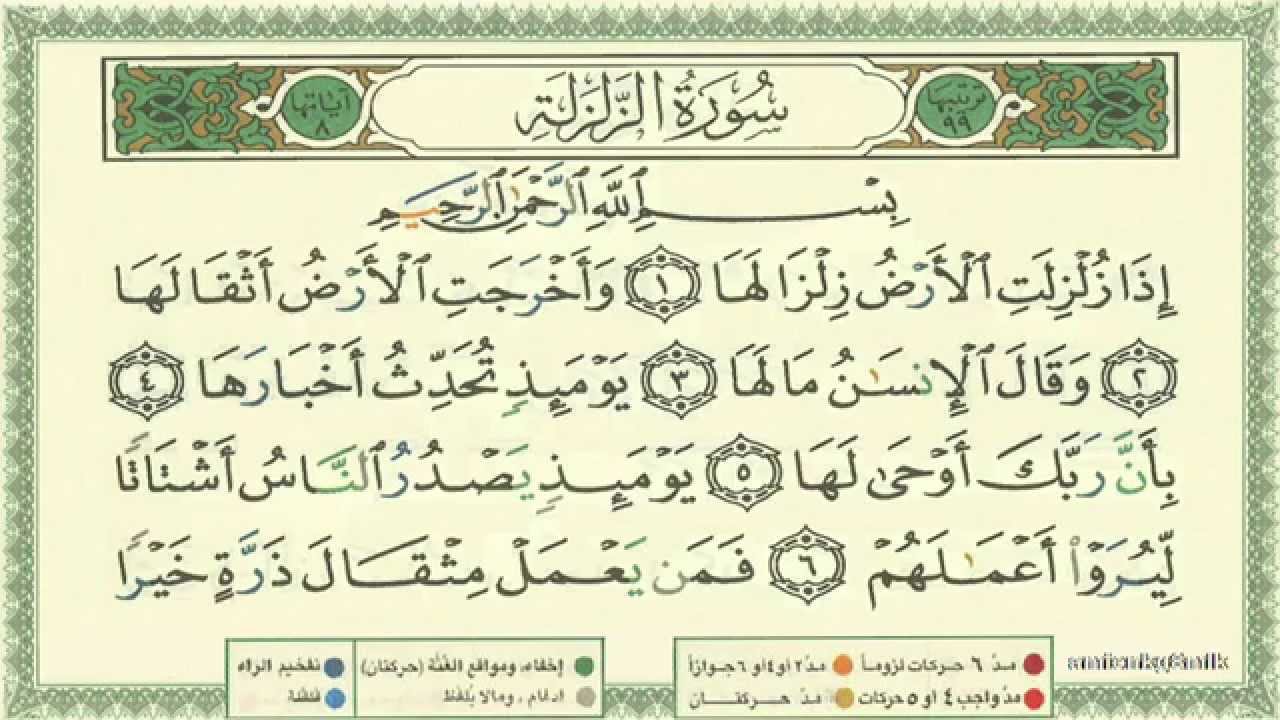 ترتيبها ٩٩ سُورَةُ الزَّلْزَلَةِ آياتها ٨
بِسْمِ ٱللَّهِ ٱلرَّحْمَٰنِ ٱلرَّحِيمِ
إِذَا زُلْزِلَتِ ٱلْأَرْضُ زِلْزَالَهَا ١ وَأَخْرَجَتِ ٱلْأَرْضُ أَثْقَالَهَا
٢ وَقَالَ ٱلْإِنسَٰنُ مَا لَهَا ٣ يَوْمَئِذٍ تُحَدِّثُ أَخْبَارَهَا ٤
بِأَنَّ رَبَّكَ أَوْحَىٰ لَهَا ٥ يَوْمَئِذٍ يَصْدُرُ ٱلنَّاسُ أَشْتَاتًا
لِّيُرَوْا۟ أَعْمَٰلَهُمْ ٦ فَمَن يَعْمَلْ مِثْقَالَ ذَرَّةٍ خَيْرًا
مدّ ٦ حركات لزوماً مدّ ٢ أو ٤ أو ٦ جوازاً إخفاء، ومواقع الغُنَّة (حركتان) تفخيم الراء
مدّ واجب ٤ أو ٥ حركات مدّ حركتان ادغام، ومالا يُلفَظ قلقلة